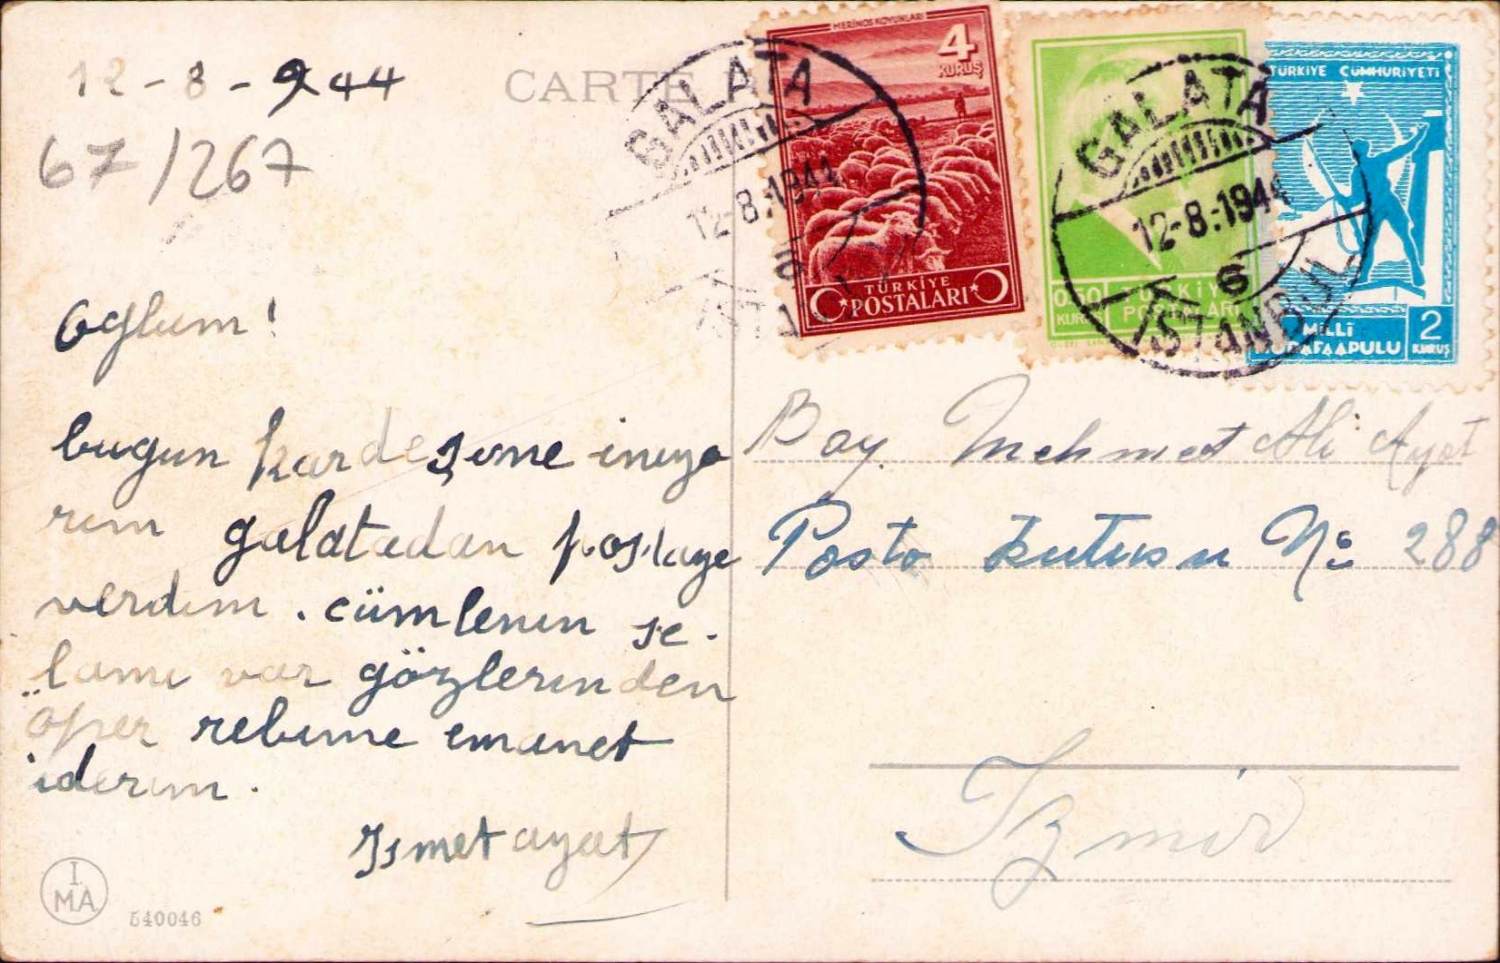 12-8-944
67/267
CARTE
Oğlum!
bugun kardeşine iniyo
rum galatadan postaye
verdim. cümlenin se-
lamı var gözlerinden
öper rebime emanet
iderim.
Ismet ayat
I
MA
540046
MERİNOS KOYUNLARI
4
KURUŞ
TÜRKİYE
POSTALARI
GALATA
12-8-1944
6
ISTANBUL
0.50
KURUŞ
TÜRKİYE
POSTALARI
GALATA
12-8-1944
6
ISTANBUL
TÜRKİYE CÜMHURİYETİ
MİLLİ
MÜDAFAA PULU
2
KURUŞ
Bay Mehmet Ali Ayat
Posta kutusu No 288
Izmir